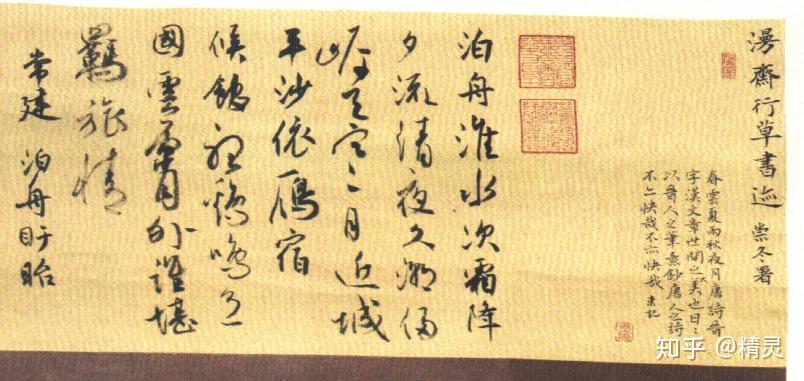 漫齋行草書迹 崇冬署
春雲夏雨秋夜月唐詩晉
字漢文章世間之美也日〻
以晉人之筆意鈔唐人之詩
不亦快哉不亦快哉
泊舟淮水次霜降
夕流清夜久潮侵
岸天寒月近城
平沙依雁宿
候館聽鷄鳴鄉
國雲霄外誰堪
羈旅情
常建 泊舟盱眙
知乎 @精灵